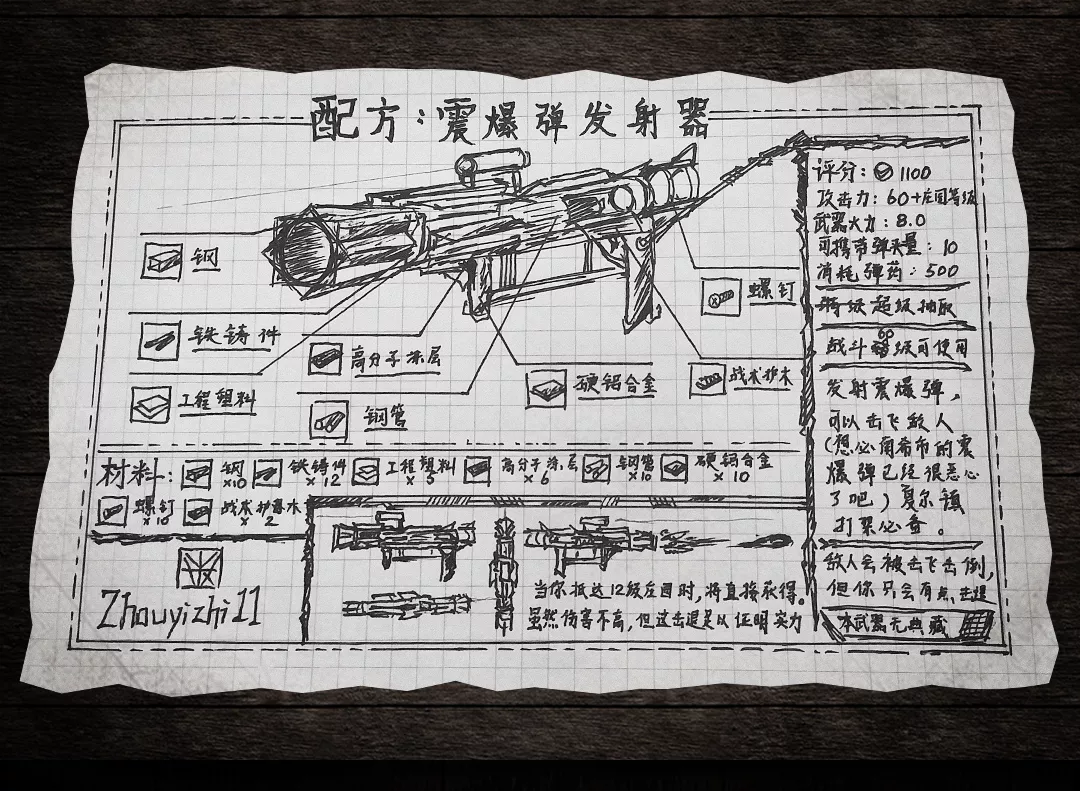 配方：震爆弹发射器
钢
铁铸件
工程塑料
高分子涂层
钢管
硬铝合金
螺钉
战术护木
评分：1100
攻击力：60+庄园等级
武器火力：8.0
可携带弹夹量：10
消耗弹药：500
特级超级抽取
战斗60级可使用
发射震爆弹，
可以击飞敌人
(想必角希布的震
爆弹已经很恶心
了吧）夏尔镇
打架必备。
敌人会被击飞击倒，
但你只会有点击退
本武器无典藏
材料：钢 x10 铁铸件 x12 工程塑料 x5 高分子涂层 x6 钢管 x10 硬铝合金 x10
螺钉 x10 战术护木 x2
Zhouyizhi11
当你抵达12级庄园时，将直接获得。
虽然伤害不高，但这击退足以证明实力